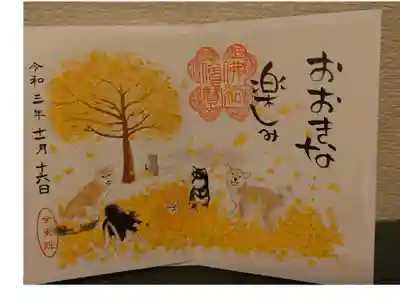 おおきな
楽しみ
令和三年十一月十六日